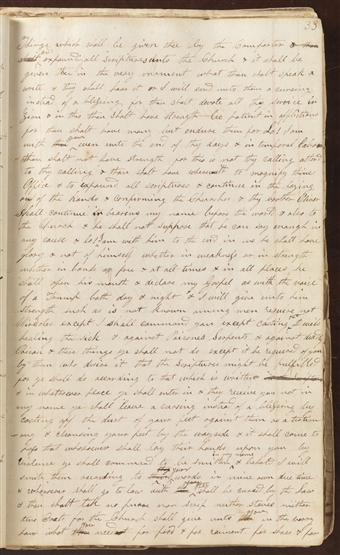 33
things which shall be given thee by the Comforter &
expound all scriptures unto the Church & it shall be
given thee in the very moment what thou shalt speak &
write & they shall hear it or I will send unto them a cursing
instead of a blessing for thou shalt devote all thy service in
Zion & in this thou shalt have strength be patient in afflictions
for thou shalt have many but endure them for Lo! I am
with you even unto the end of thy days & in temporal labors
thou shalt not have strength for this is not thy calling attend
to thy calling & thou shalt have wherewith to magnify thine
Office & to expound all scriptures & continue in the laying
on of the hands & confirming the Churches & thy brother Oliver
shall continue in bearing my name before the world & also to
the Church & he shall not suppose that he can say enough in
my cause & lo! I am with him to the end in me he shall have
glory & not of himself whether in weakness or in strength
whether in bonds or free & at all times & in all places he
shall open his mouth & declare my Gospel as with the voice
of a Trump both day & night & I will give unto him
strength such as is not known among men require not
Miracles except I shall command you except casting out Devils
healing the sick & against Poisonous Serpents & against deadly
Poison & these things ye shall not do except it be required of you
by them who desire it that the Scriptures might be fulfilled
for ye shall do according to that which is written
& in whatsoever place ye shall enter in & they receive you not in
my name ye shall leave a cursing instead of a blessing by
casting off the dust of your feet against them as a testim
-ony & cleansing your feet by the wayside & it shall come to
pass that whosoever shall lay their hands upon you by
violence ye shall command to be smitten in my name & behold I will
smite them according to your words in mine own due time
& whosoever shall go to law with thee shall be cursed by the law
& thou shalt take no purse nor scrip neither staves neither
two coats for the Church shall give unto thee in the very
hour what thou needest for food & for raiment for shoes & for